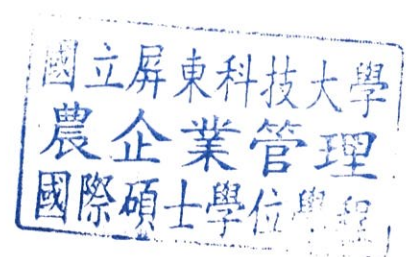 國立屏東科技大學
農企業管理
國際碩士學位學程